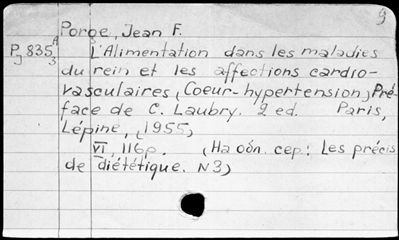 9
Porge, Jean F.
PJ 835 A/3 L'Alimentation dans les maladies
du rein et les affections cardio-
vasculaires (Coeur-hypertension) Pré-
face de C. Laubry. 2 ed. Paris,
Lépine, (1955)
VI, 116p. (На обл. сер.: Les précis
de diététique. N3)